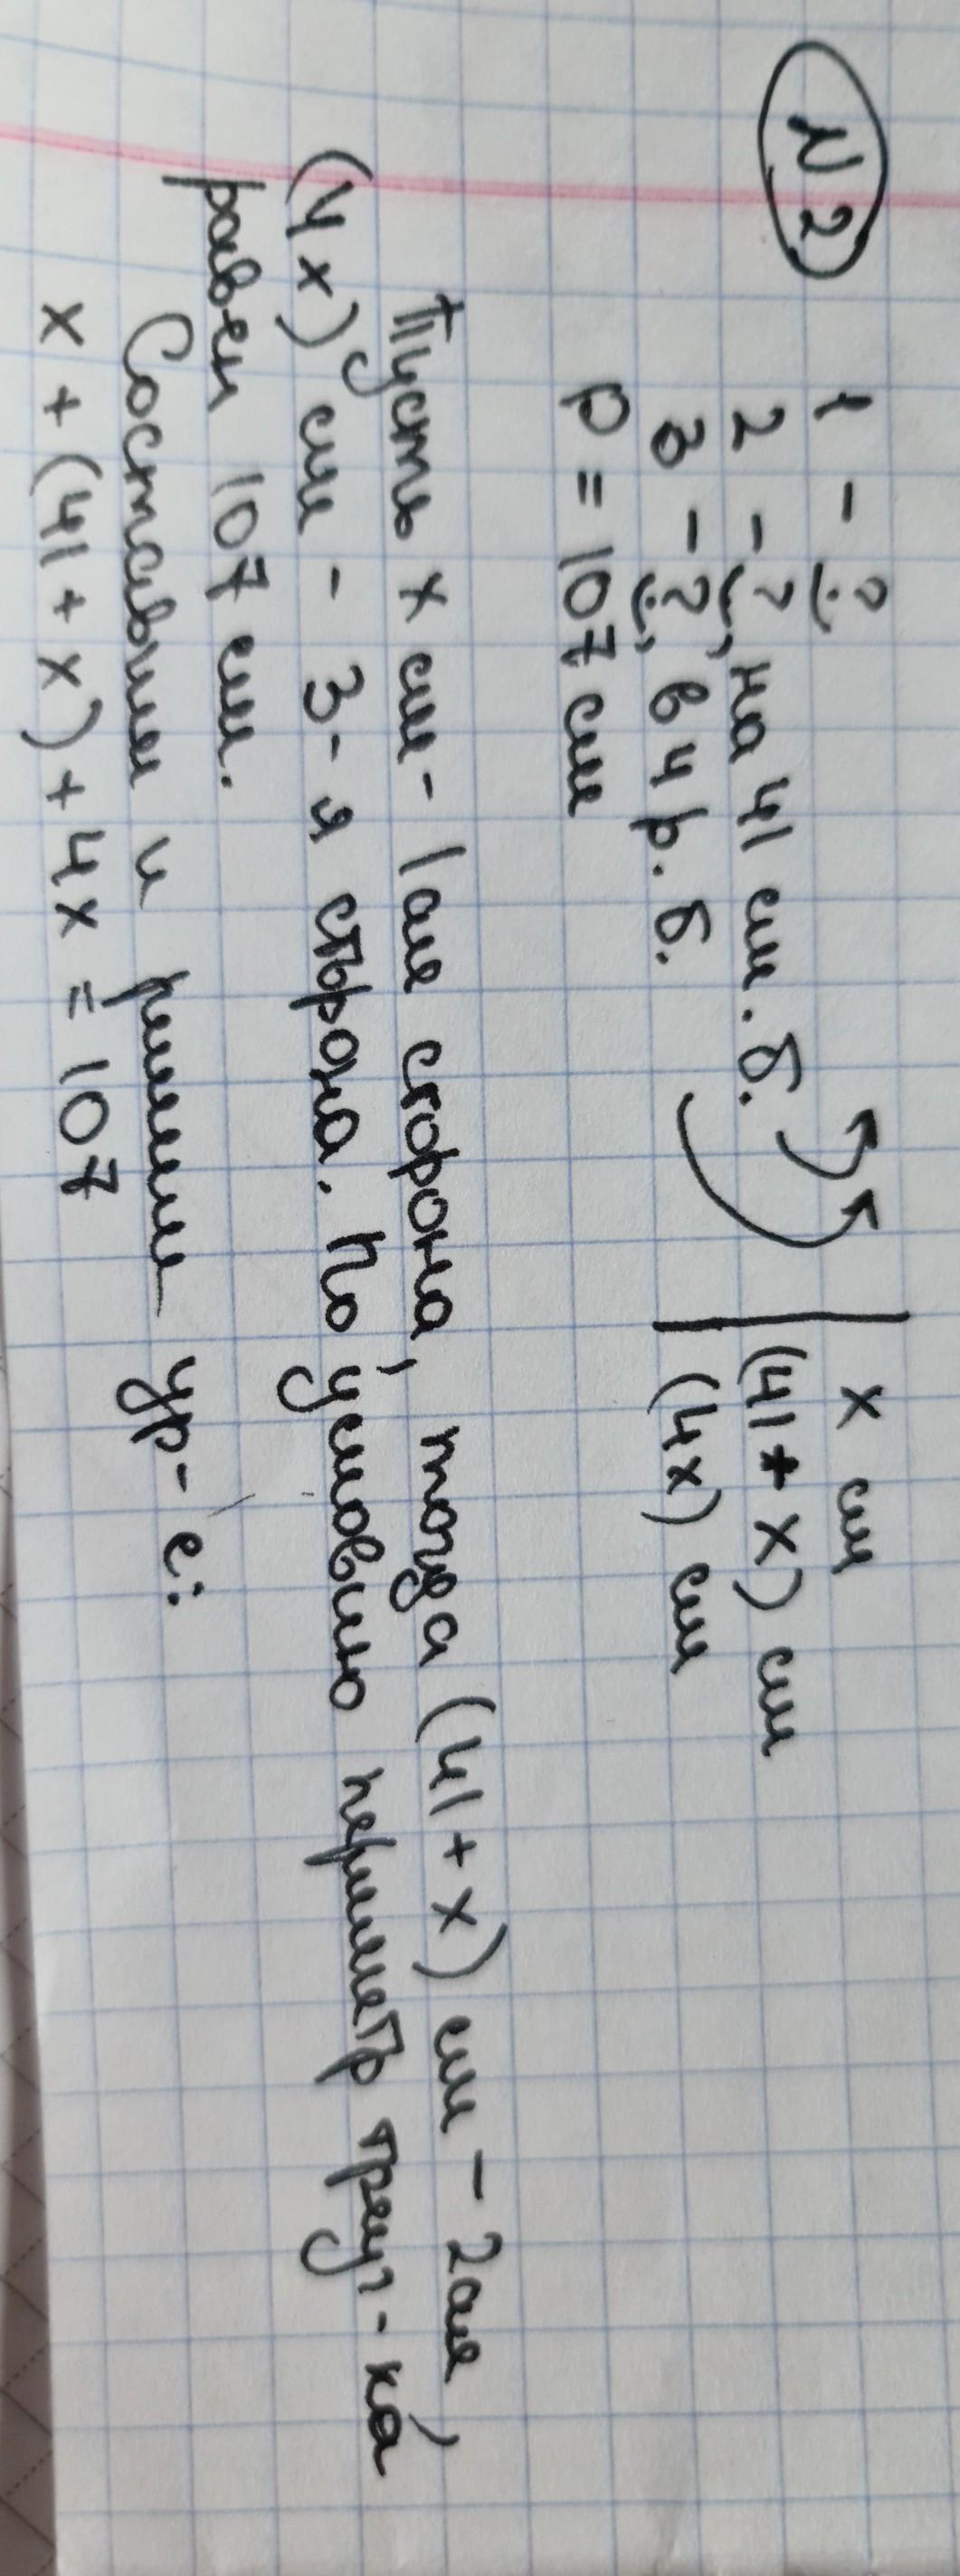 N2
1 - ? x см
2 - ?, на 41 см. б. (41 + x) см
3 - ?, в 4 р. б. (4x) см
P = 107 см
Пусть x см - 1ая сторона, тогда (41 + x) см - 2ая,
(4x) см - 3-я сторона. По условию периметр треуг-ка
равен 107 см.
Составим и решим ур-е:
x + (41 + x) + 4x = 107